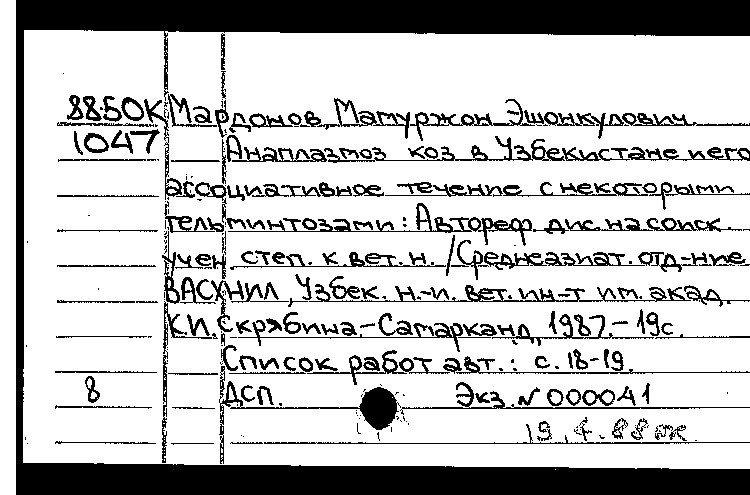 88-50К Мардонов, Мамуржон Эшонкулович.
1047 Анаплазмоз коз в Узбекистане и его
ассоциативное течение с некоторыми
гельминтозами: Автореф. дис. на соиск
учен. степ. к. вет. н. /Среднеазиат. отд-ние
ВАСХНИЛ, Узбек. н.-и. вет. ин-т им. акад.
К.И. Скрябина.-Самарканд, 1987.-19с.
Список работ авт.: с. 18-19.
8 ДСП. Экз. N 000041
19.4.88